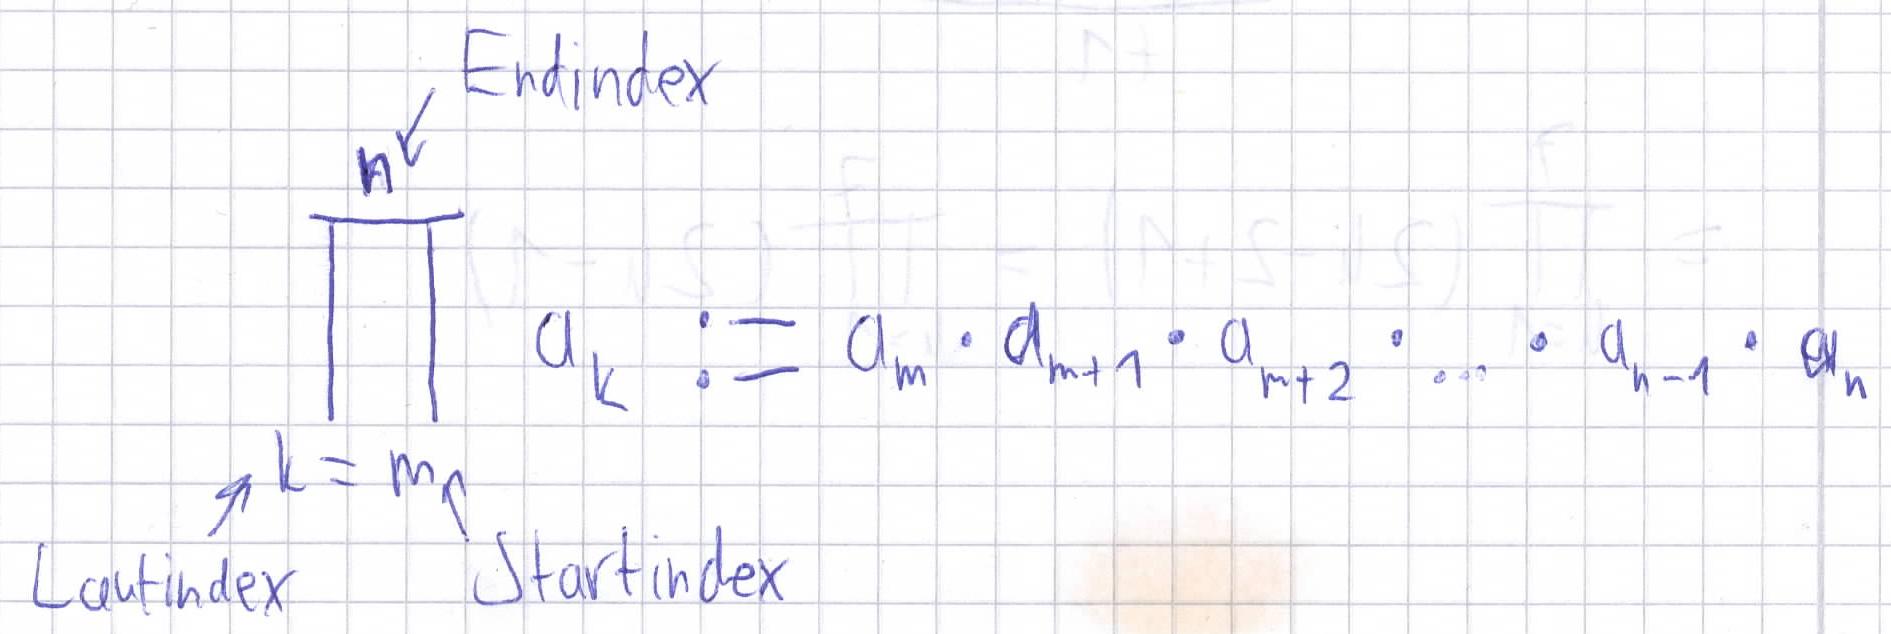 Endindex
n
∏ a_k := a_m · a_{m+1} · a_{m+2} · ... · a_{n-1} · a_n
k = m
Laufindex Startindex